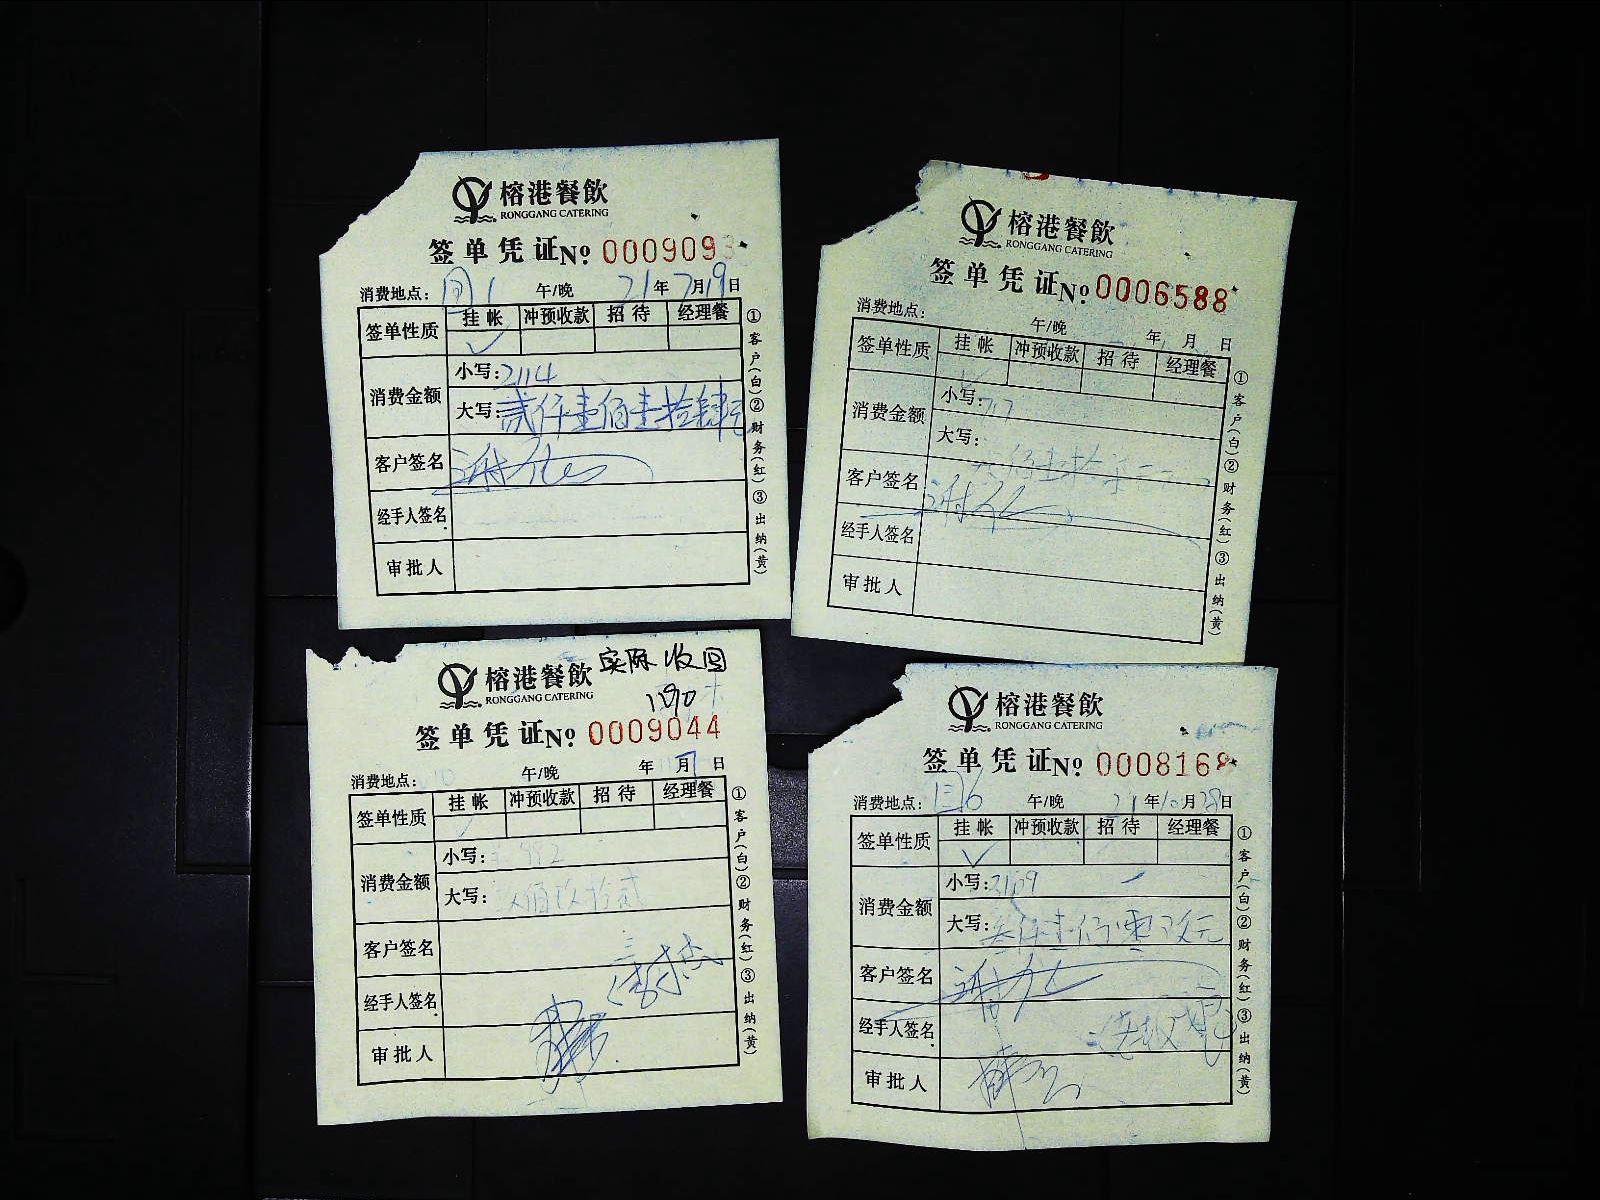 榕港餐飲
RONGGANG CATERING
签单凭证№ 0009093
消费地点: 午/晚 21年7月19日
签单性质 挂帐 冲预收款 招待 经理餐
✓
消费金额 小写: 2114
大写: 贰仟壹佰壹拾肆元
客户签名
经手人签名
审批人
①客户(白)②财务(红)③出纳(黄)
榕港餐飲
RONGGANG CATERING
签单凭证№ 0006588
消费地点: 午/晚 年 月 日
签单性质 挂帐 冲预收款 招待 经理餐
消费金额 小写:
大写:
客户签名
经手人签名
审批人
①客户(白)②财务(红)③出纳(黄)
实际收回
1190
榕港餐飲
RONGGANG CATERING
签单凭证№ 0009044
消费地点: 午/晚 年 月 日
签单性质 挂帐 冲预收款 招待 经理餐
消费金额 小写: 992
大写: 玖佰玖拾贰
客户签名
经手人签名
审批人
①客户(白)②财务(红)③出纳(黄)
榕港餐飲
RONGGANG CATERING
签单凭证№ 0008168
消费地点: 午/晚 21年10月28日
签单性质 挂帐 冲预收款 招待 经理餐
✓
消费金额 小写:
大写:
客户签名
经手人签名
审批人
①客户(白)②财务(红)③出纳(黄)